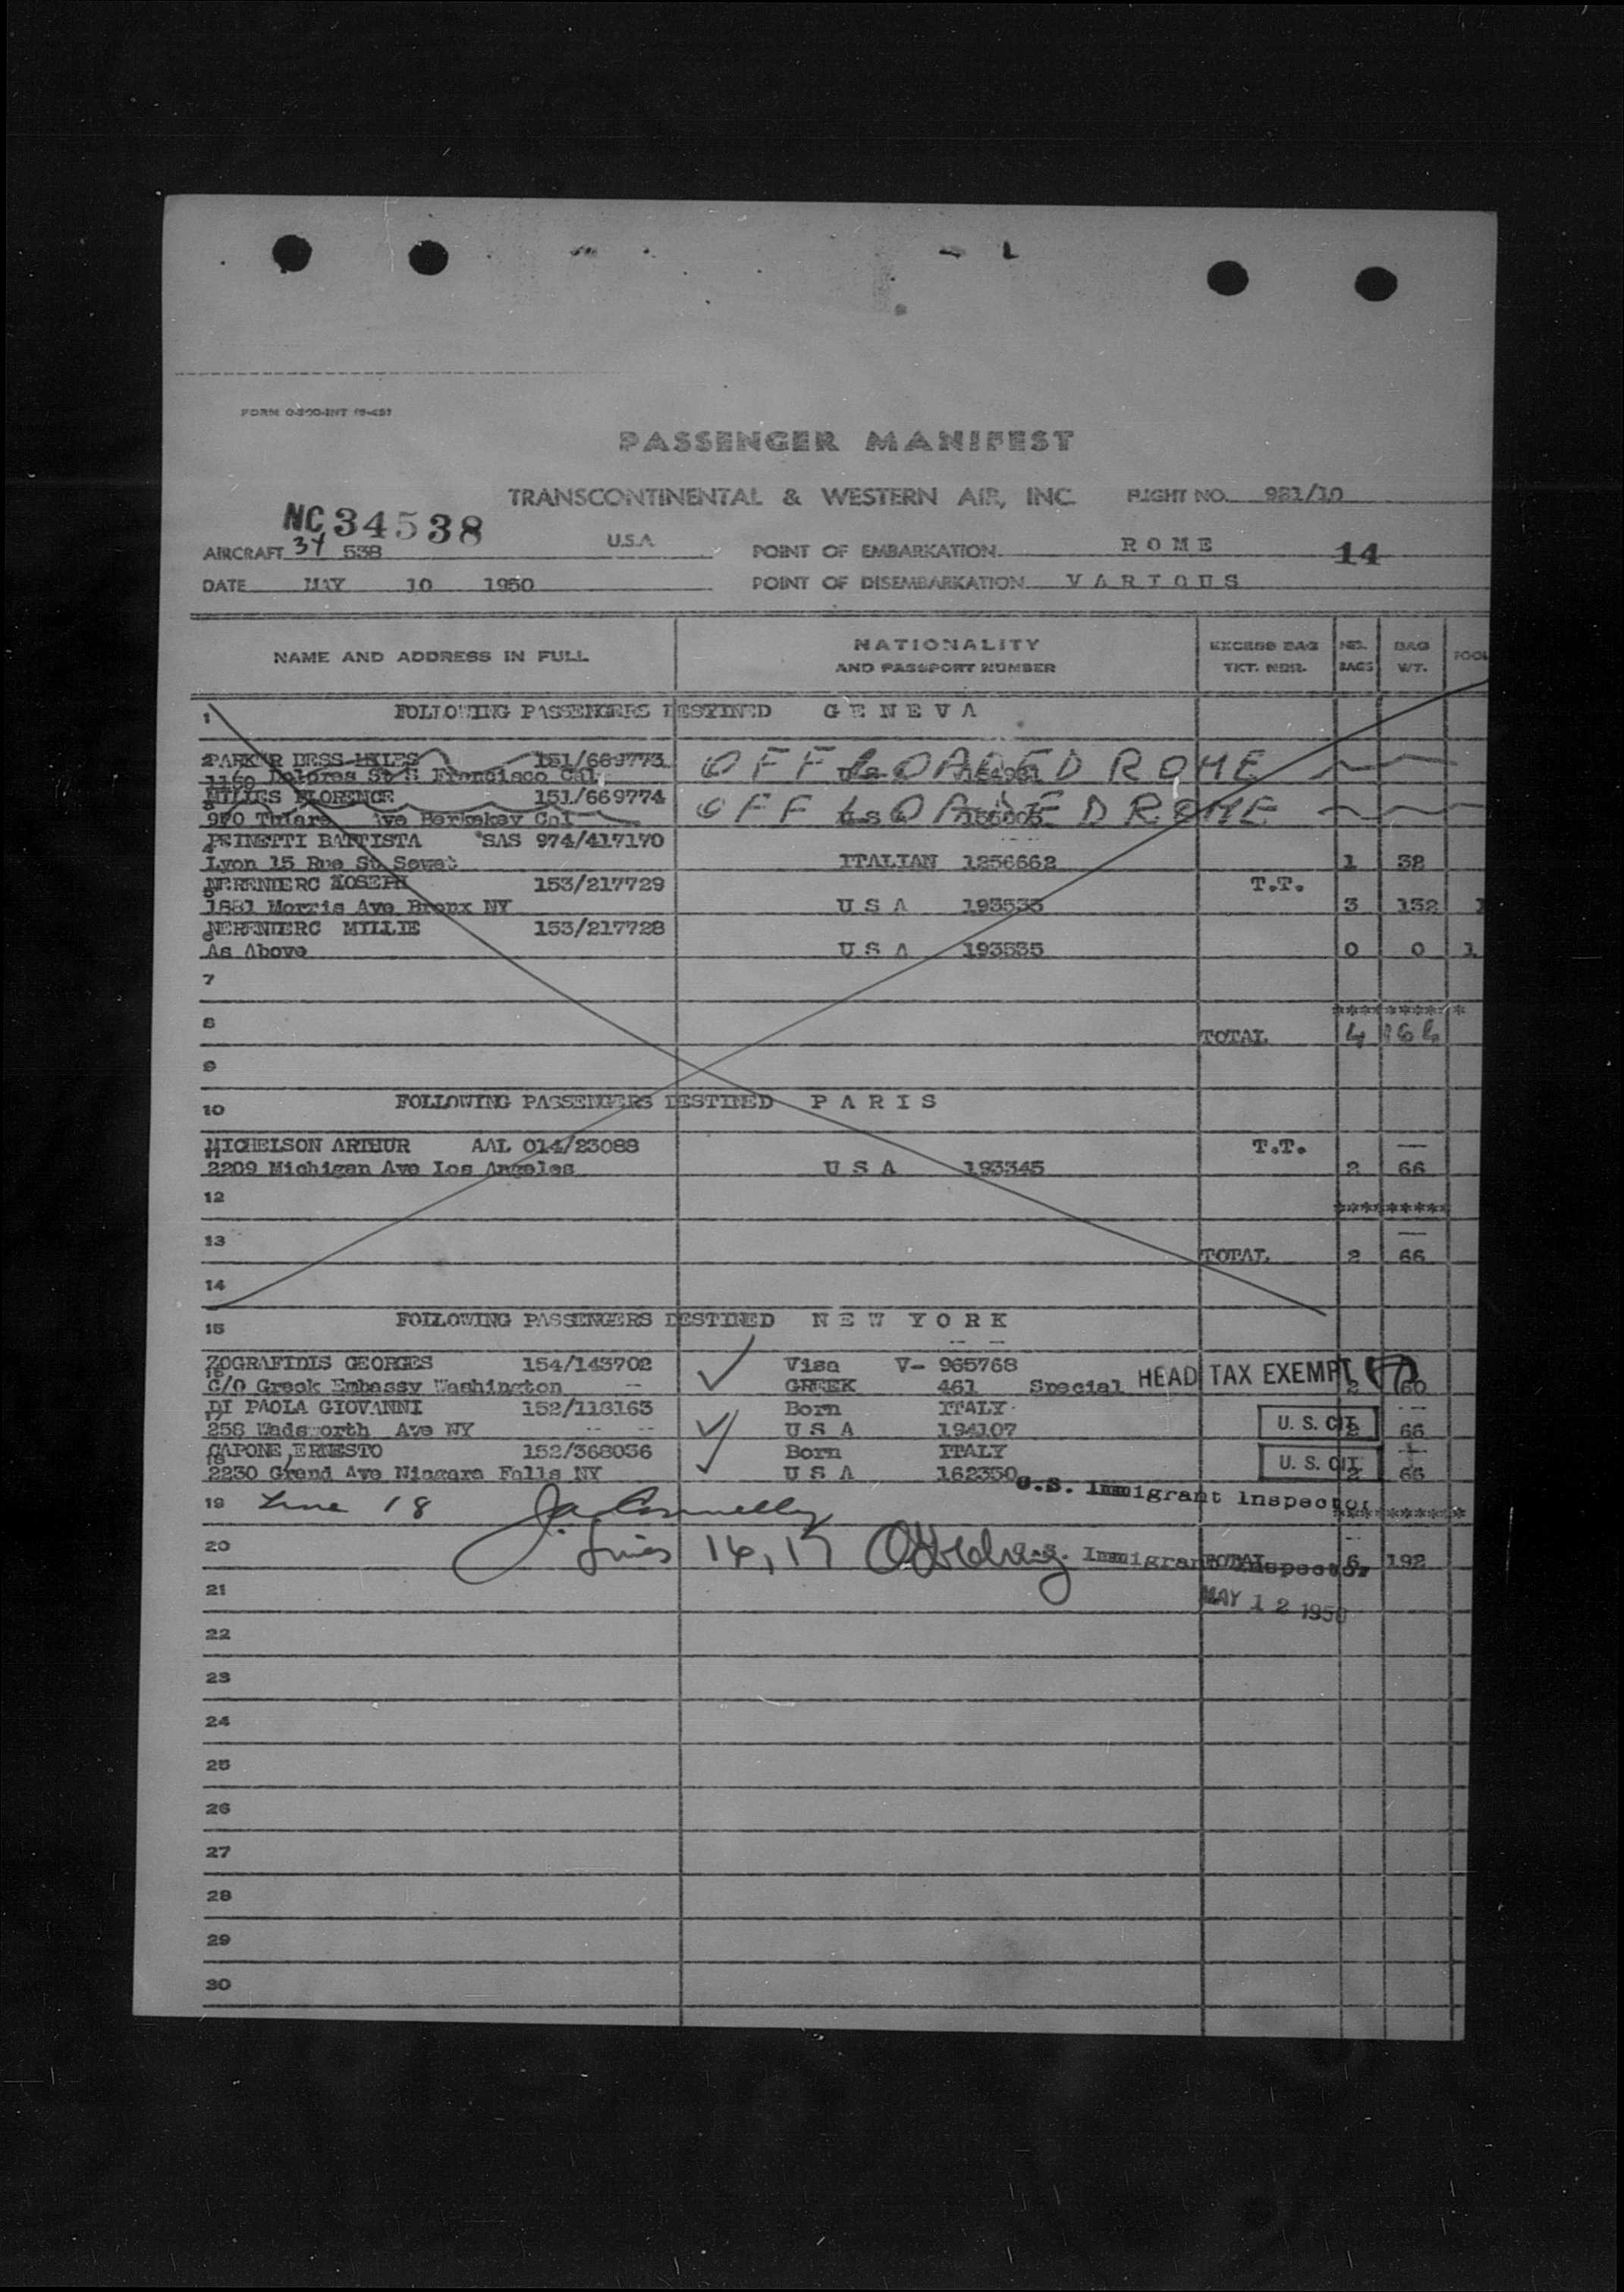 PASSENGER MANIFEST
TRANSCONTINENTAL & WESTERN AIR, INC. FLIGHT NO. 921/10
NC34538
AIRCRAFT 34 538 U.S.A. POINT OF EMBARKATION ROME 14
DATE MAY 10 1950 POINT OF DISEMBARKATION VARIOUS
NAME AND ADDRESS IN FULL NATIONALITY AND PASSPORT NUMBER EXCESS BAG TKT. NBR. NBR. BAGS BAG WT.
1 FOLLOWING PASSENGERS DESTINED GENEVA
151/669773 OFF LOADED ROME
Dolores St S Francisco Cal
FLORENCE 151/669774 OFF LOADED ROME
Ave Berkeley Cal
BATTISTA SAS 974/417170
Lyon 15 Rue St ITALIAN 1256662 1 32
JOSEPH 153/217729 T.T.
1881 Morris Ave Bronx NY U S A 193535 3 132
MILLIE 153/217728
As Above U S A 193535 0 0 1
7
*********
8 TOTAL 4 164
9
10 FOLLOWING PASSENGERS DESTINED PARIS
MICHELSON ARTHUR AAL 014/23088 T.T.
2209 Michigan Ave Los Angeles U S A 193345 2 66
12 *********
13 TOTAL 2 66
14
15 FOLLOWING PASSENGERS DESTINED NEW YORK
ZOGRAFIDIS GEORGES 154/143702 Visa V- 965768
C/O Greek Embassy Washington GREEK 461 Special HEAD TAX EXEMPT 2 60
DI PAOLA GIOVANNI 152/113163 Born ITALY
258 Wadsworth Ave NY U S A 194107 U. S. CIT. 2 66
CAPONE ERNESTO 152/368036 Born ITALY
2230 Grand Ave Niagara Falls NY U S A 162350 U. S. CIT. 2 66
19 Line 18 U.S. Immigrant Inspector *********
20 Lines 16, 17 U.S. Immigrant Inspector TOTAL 6 192
21 MAY 12 1950
22
23
24
25
26
27
28
29
30